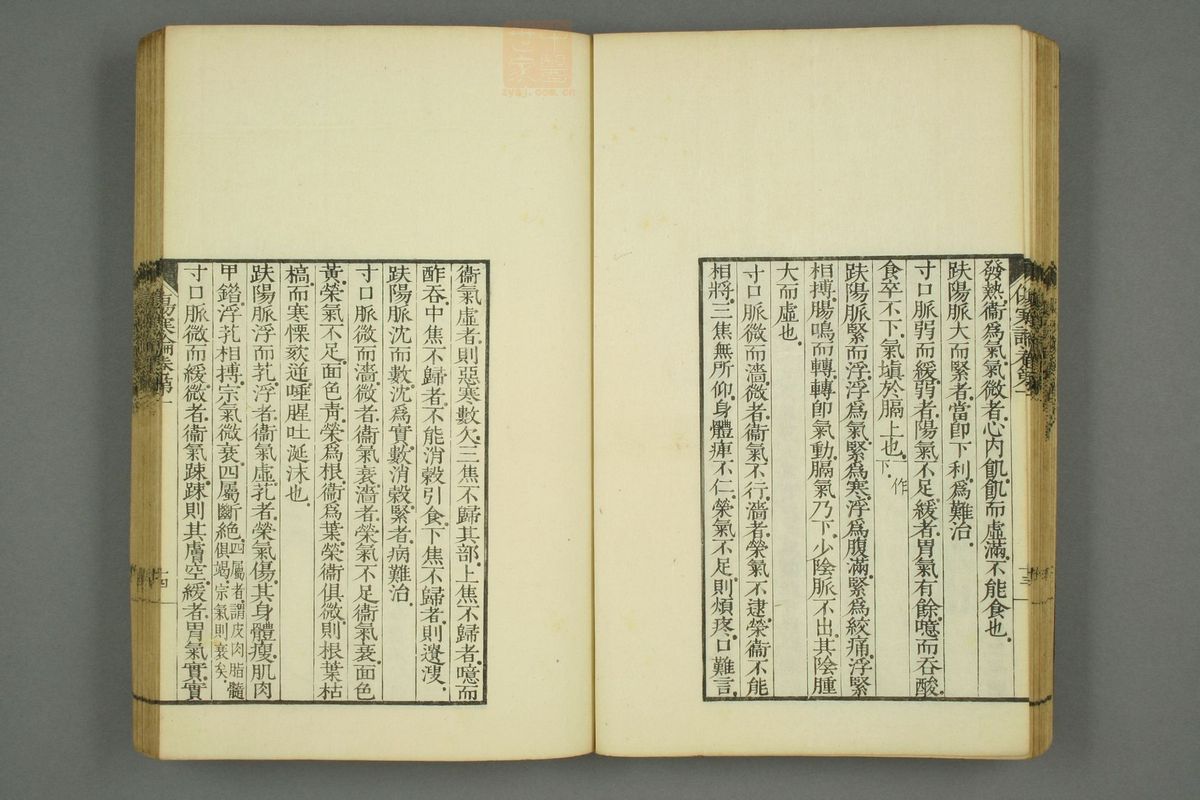 發熱衞爲氣氣微者心内飢飢而虛滿不能食也
趺陽脈大而緊者當卽下利爲難治
寸口脈弱而緩弱者陽氣不足緩者胃氣有餘噫而吞酸
食卒不下氣塡於膈上也一作下
趺陽脈緊而浮浮爲氣緊爲寒浮爲腹滿緊爲絞痛浮緊
相搏腸鳴而轉轉卽氣動膈氣乃下少陰脈不出其陰腫
大而虛也
寸口脈微而濇微者衞氣不行濇者榮氣不逮榮衞不能
相將三焦無所仰身體痺不仁榮氣不足則煩疼口難言
衞氣虛者則惡寒數欠三焦不歸其部上焦不歸者噫而
酢吞中焦不歸者不能消穀引食下焦不歸者則遺溲
趺陽脈沈而數沈爲實數消穀緊者病難治
寸口脈微而濇微者衞氣衰濇者榮氣不足衞氣衰面色
黃榮氣不足面色靑榮爲根衞爲葉榮衞俱微則根葉枯
槁而寒慄欬逆唾腥吐涎沫也
趺陽脈浮而芤浮者衞氣虛芤者榮氣傷其身體瘦肌肉
甲錯浮芤相搏宗氣微衰四屬斷絕四屬者謂皮肉脂髓俱竭宗氣則衰矣
寸口脈微而緩微者衞氣踈踈則其膚空緩者胃氣實實
傷寒論卷第一
十四